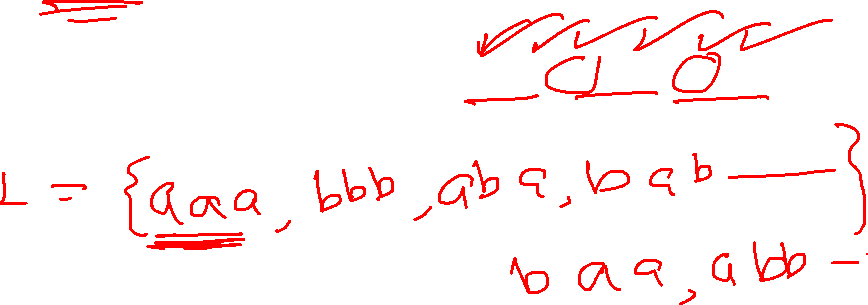 L = {aaa, bbb, aba, bab ——— }
baa, abb —